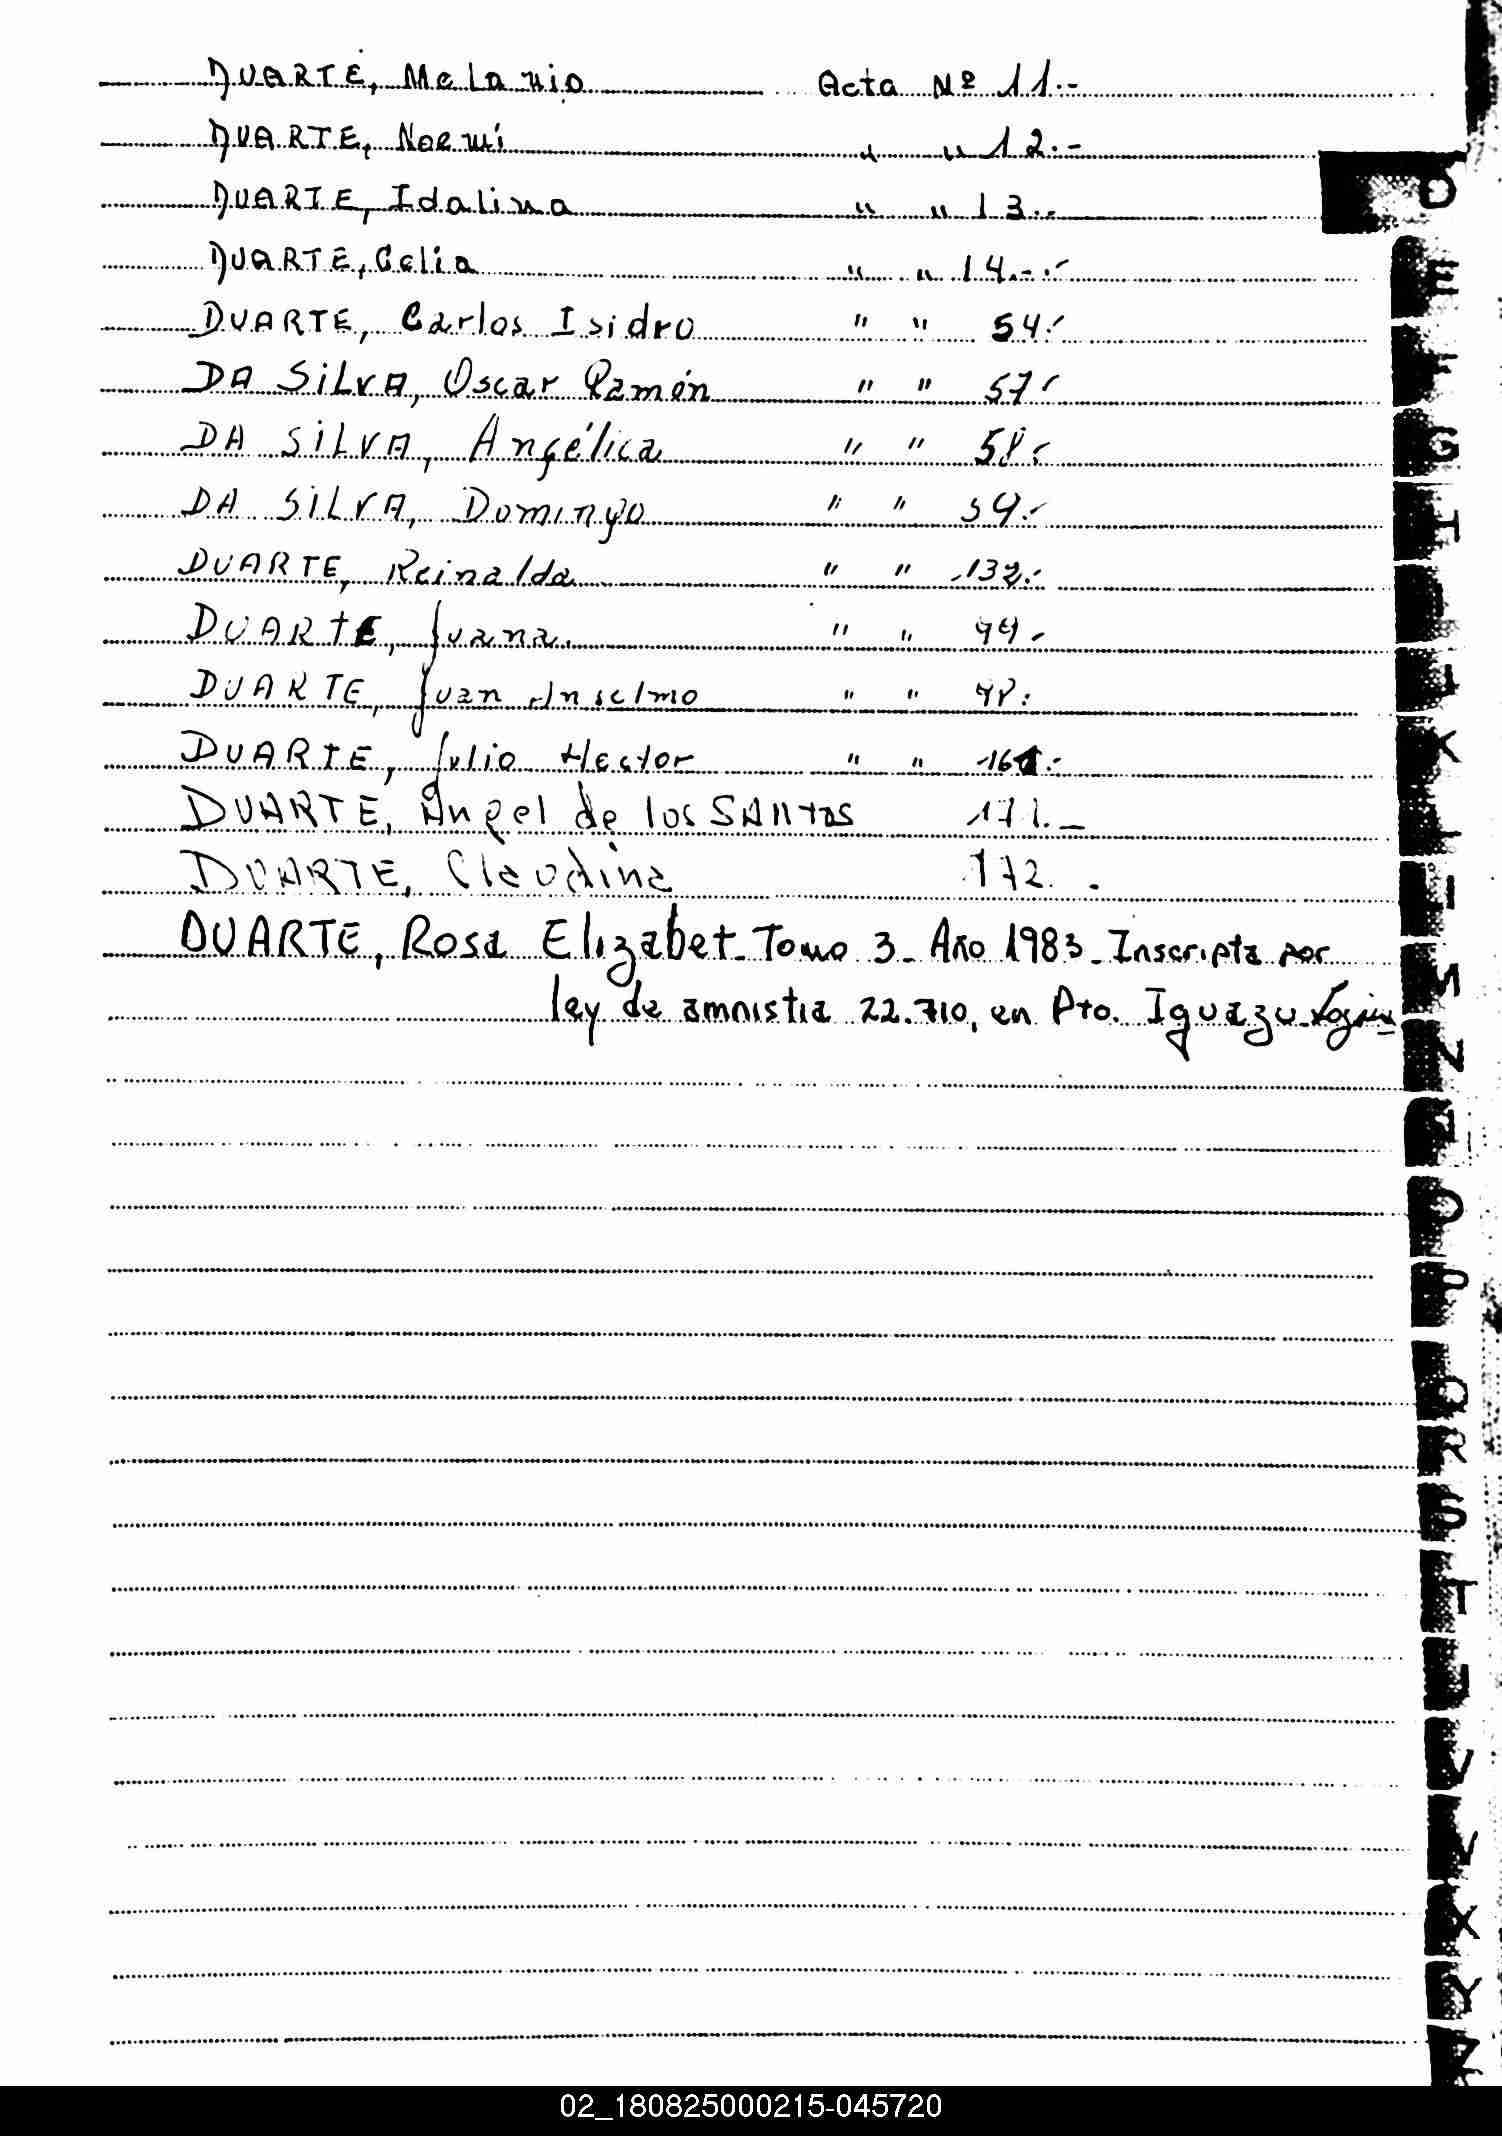 DUARTE, Melanio Acta Nº 11.-
DUARTE, Noemí " " 12.-
DUARTE, Idalina " " 13.-
DUARTE, Celia " " 14.-
DUARTE, Carlos Isidro " " 54.-
DA SILVA, Oscar Ramón " " 57.-
DA SILVA, Angélica " " 58.-
DA SILVA, Domingo " " 59.-
DUARTE, Reinalda " " 132.-
DUARTE, Juana " "
DUARTE, Juan Anselmo " "
DUARTE, Julio Hector " "
DUARTE, Angel de los SANtos 171.-
DUARTE, Claudina 172.-
DUARTE, Rosa Elizabet - Tomo 3 - Año 1983 - Inscripta por
ley de amnistia 22.710, en Pto. Iguazu -
D
E
F
G
H
I
J
K
L
M
N
Ñ
O
P
Q
R
S
T
U
V
W
X
Y
Z
02_180825000215-045720